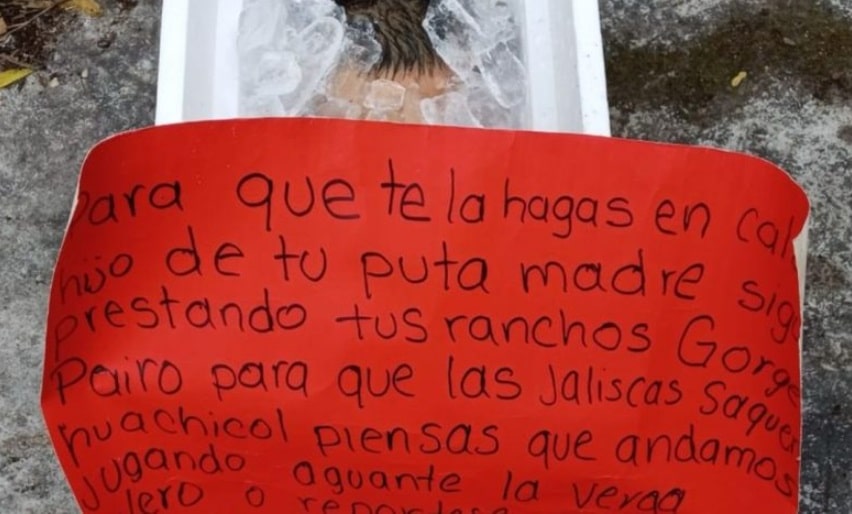 Para que te la hagas en cal
hijo de tu puta madre sigu
prestando tus ranchos Gorge
Pairo para que las Jaliscas saquen
huachicol piensas que andamos
jugando aguante la verga
lero o